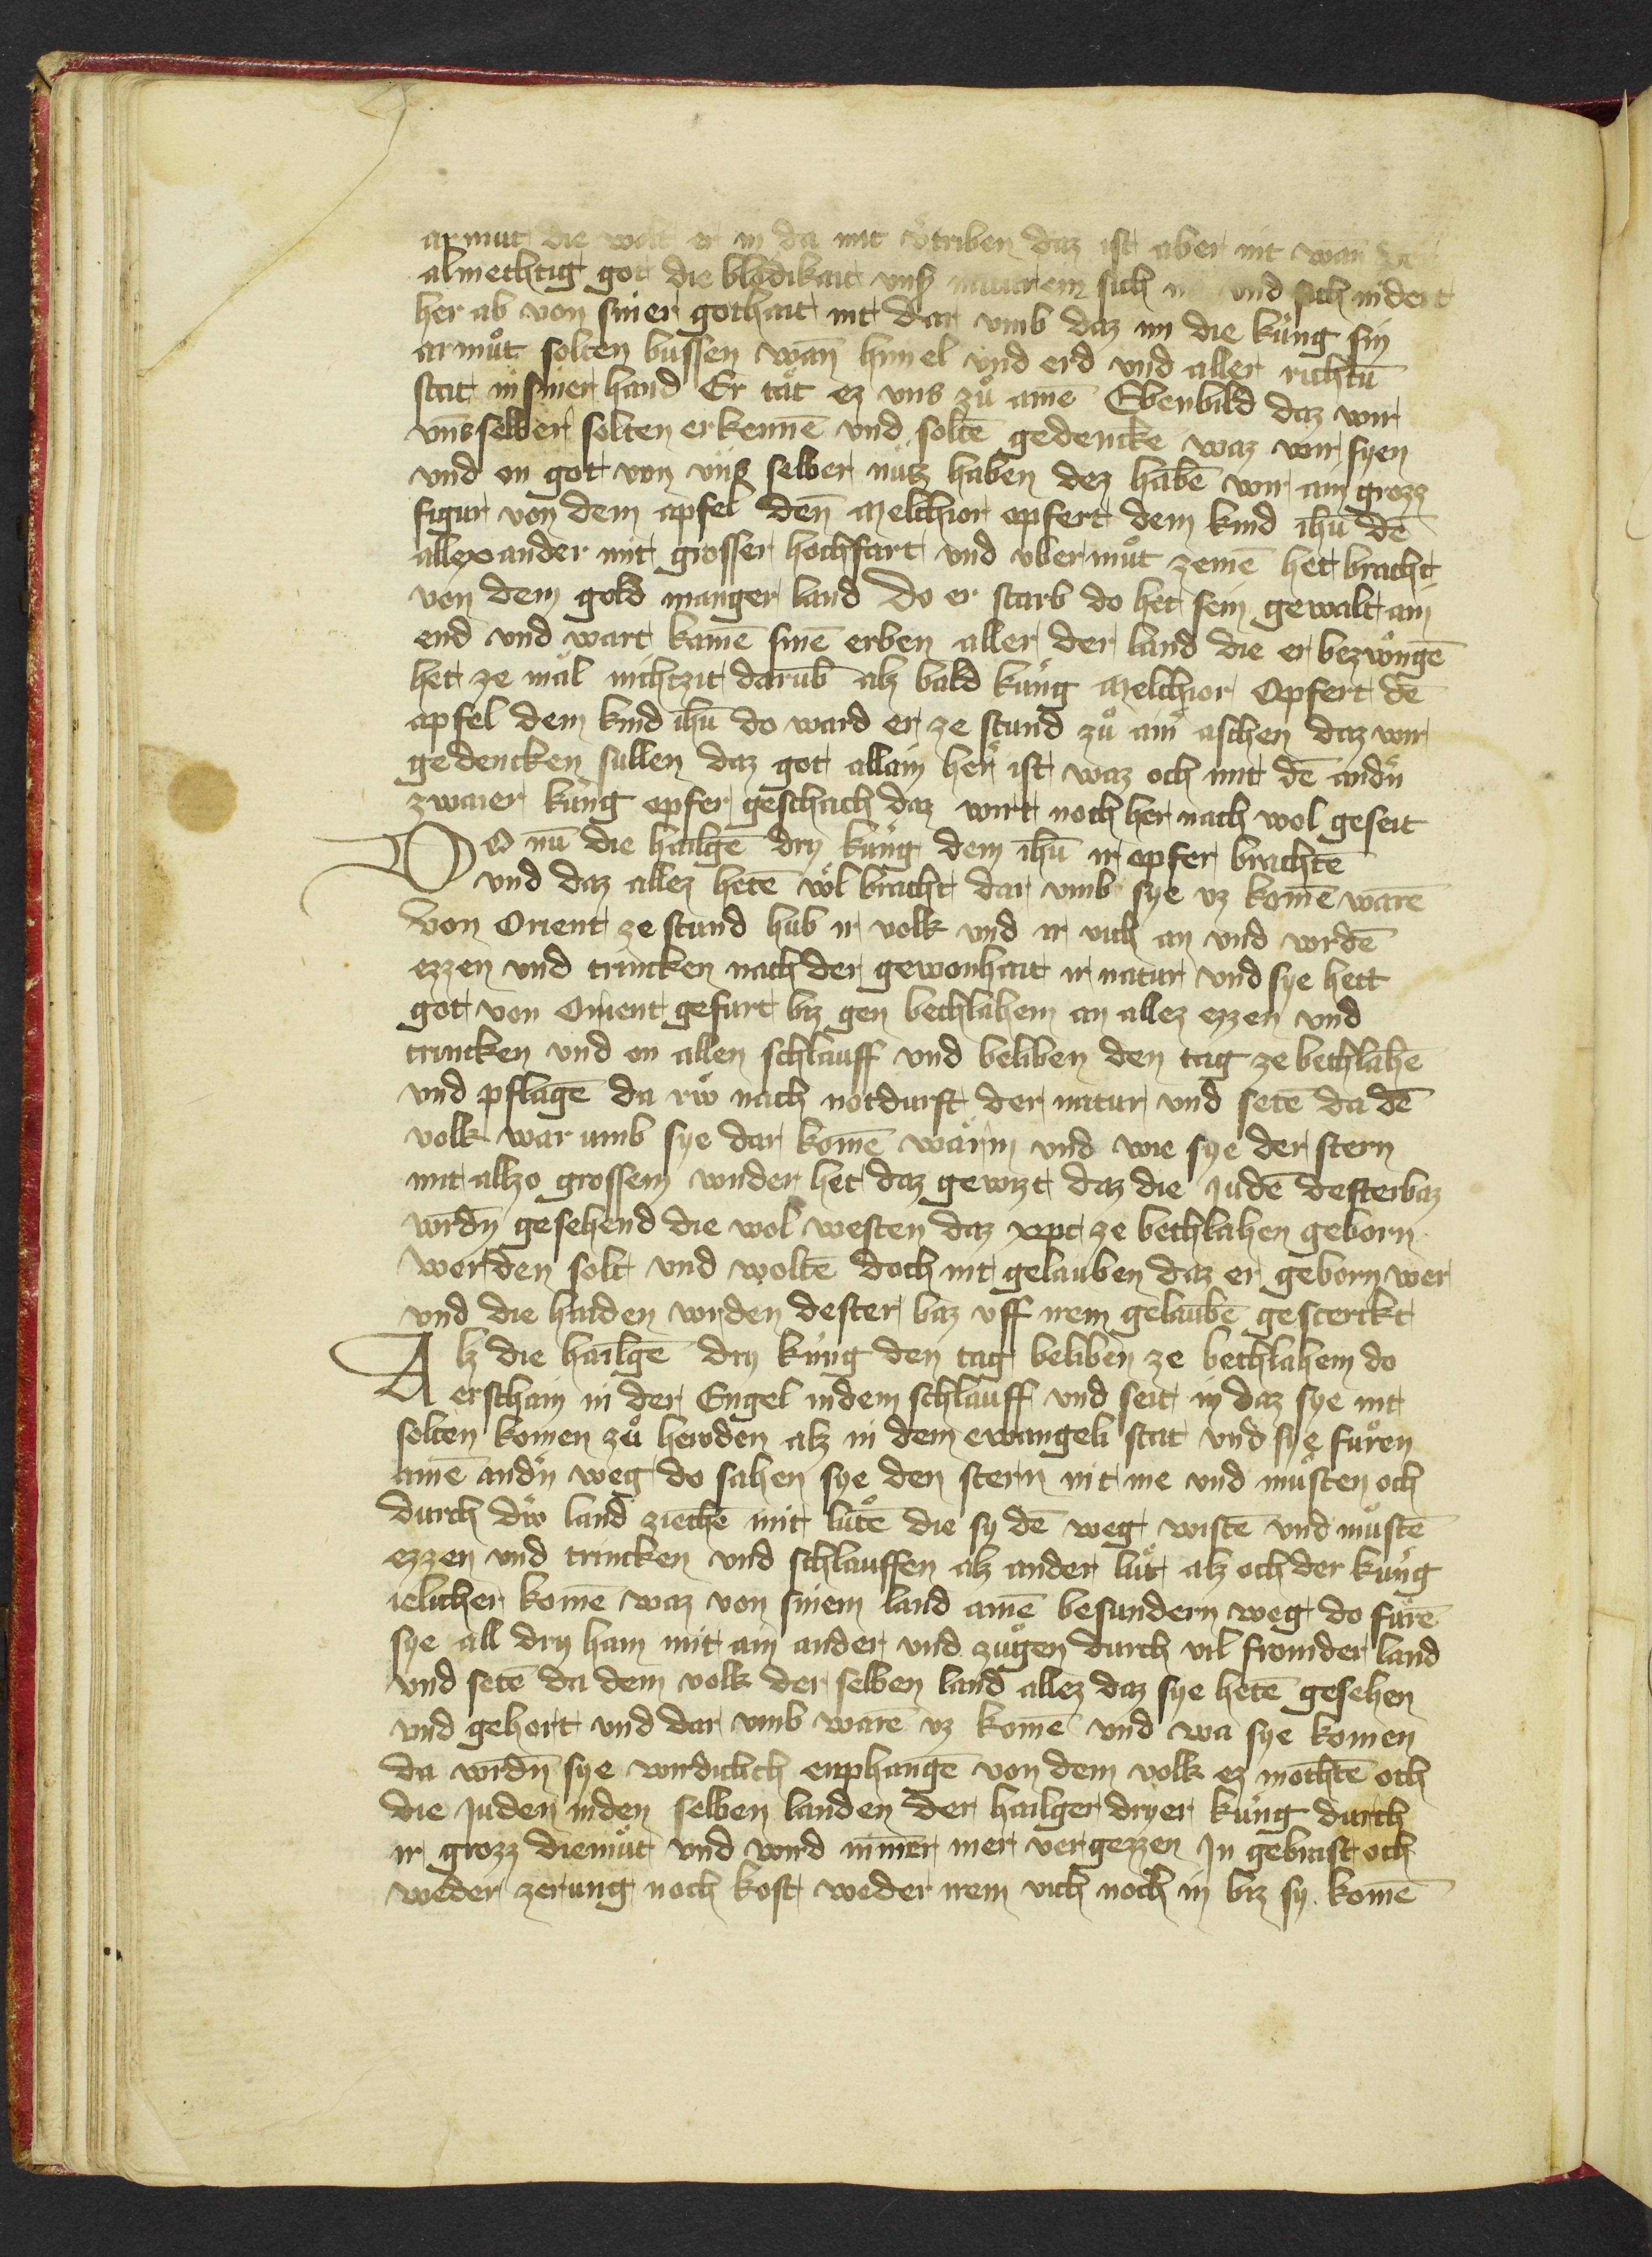 armut die wolt er in da mit v̾triben daz ist aber nit wan̄ der
almechtig got die blödikait vnß naturem sich und sich nidert
her ab von siner gothait nit dar vmb daz im die küng sin
armuͦt solten bussen wan̄ himel vnd erd vnd aller richtū
stat in siner hand Er tät ez vns zuͦ aine Ebenbild daz wir
vns selber solten erkennē vnd soltē gedencke waz wir syen
vnd on got von vnß selber nütz haben dez habē wir ain grozz
figur von dem apfel den Melchior opfert dem kind ihū dē
allexander mit grosser hochfart vnd vbermuͦt zemē het bracht
von dem gold manger land Do er starb do het sein gewalt ain
end vnd wart kainē sinē erben aller der land die er bezwngē
het ze mal nichtzit darūb alz bald küng Melchior Opfert dē
apfel dem kind ihū do ward er ze stund zuͦ ain aschen daz wir
gedencken sullen daz got allain her ist waz och mit dē andn̄
zwaier küng opfer geschach daz wirt noch her nach wol geseit
Do nū die hailgē dry küng dem ihū ir opfer brachtē
vnd daz allez hetē wol bracht dar vmb sye vz komē warē
von Orient ze stund hub ir volk vnd ir vich an vnd wrdē
ezzen vnd trincken nach der gewonhait ir natur vnd sye hett
got von Orient gefurt biz gen bethlahem an allez ezzen vnd
trincken vnd on allen schlauff vnd beliben den tag ze bethlahē
vnd pflagē da rw nach notdurft der natur vnd setē da dē
volk war umb sye dar komē wärin vnd wie sye der stern
mit allzo grossem wnder het daz gewizt daz die Judē desterbaz
wrdn̄ gesehend die wol westen daz xpc ze bethlahen geborn
werden solt vnd woltē doch nit gelauben daz er geborn wer
vnd die haiden wrden dester baz vff irem gelaubē gesterckt
Alz die hailgē dry küng den tag beliben ze bethlahem do
erschain in der Engel in dem schlauff vnd seit in daz sye nit
solten komen zuͦ herrden alz in dem ewangeli stat vnd sye fuͦren
ainē andn̄ weg do sahen sye den stern nit me vnd muͦsten och
durch diw land ziechē mit lütē die sy dē weg wistē vnd muͦstē
ezzen vnd trincken vnd schlauffen alz ander lüt alz och der küng
ielicher komē waz von sinem land ainē besundern weg do fuͦrē
sye all dry haim mit ain ander vnd zugen durch vil fromder land
vnd setē da dem volk der selben land allez daz sye hetē gesehen
vnd gehort vnd dar vmb warē vz komē vnd wa sye komen
da wrdn̄ sye wirdiclich enphangē von dem volk ez mochtē och
die Juden in den selben landen der hailger dryer küng durch
ir grozz diemuͦt vnd wird nimer mer vergezzen In gebrast och
weder zerung noch kost weder irem vich noch in biz sy komē